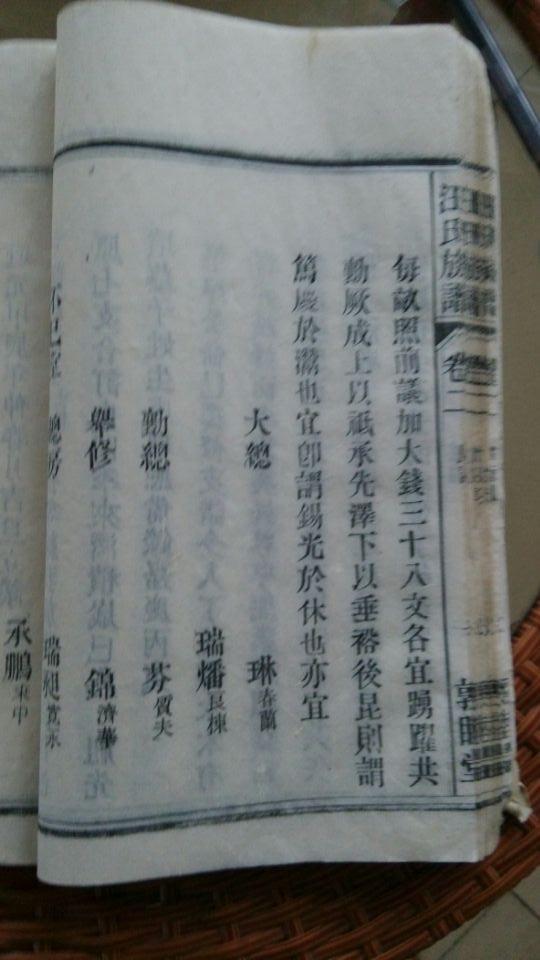 汪氏族譜
卷二
敦睦堂
每畝照前議加大錢三十八文各宜踴躍共
勷厥成上以祇承先澤下以垂裕後昆則謂
篤慶於潊也宜卽謂錫光於休也亦宜
大總 琳春蘭
瑞燔良棟
勷總 芬質夫
錦濟華
總房 瑞昶寬永
承鵬